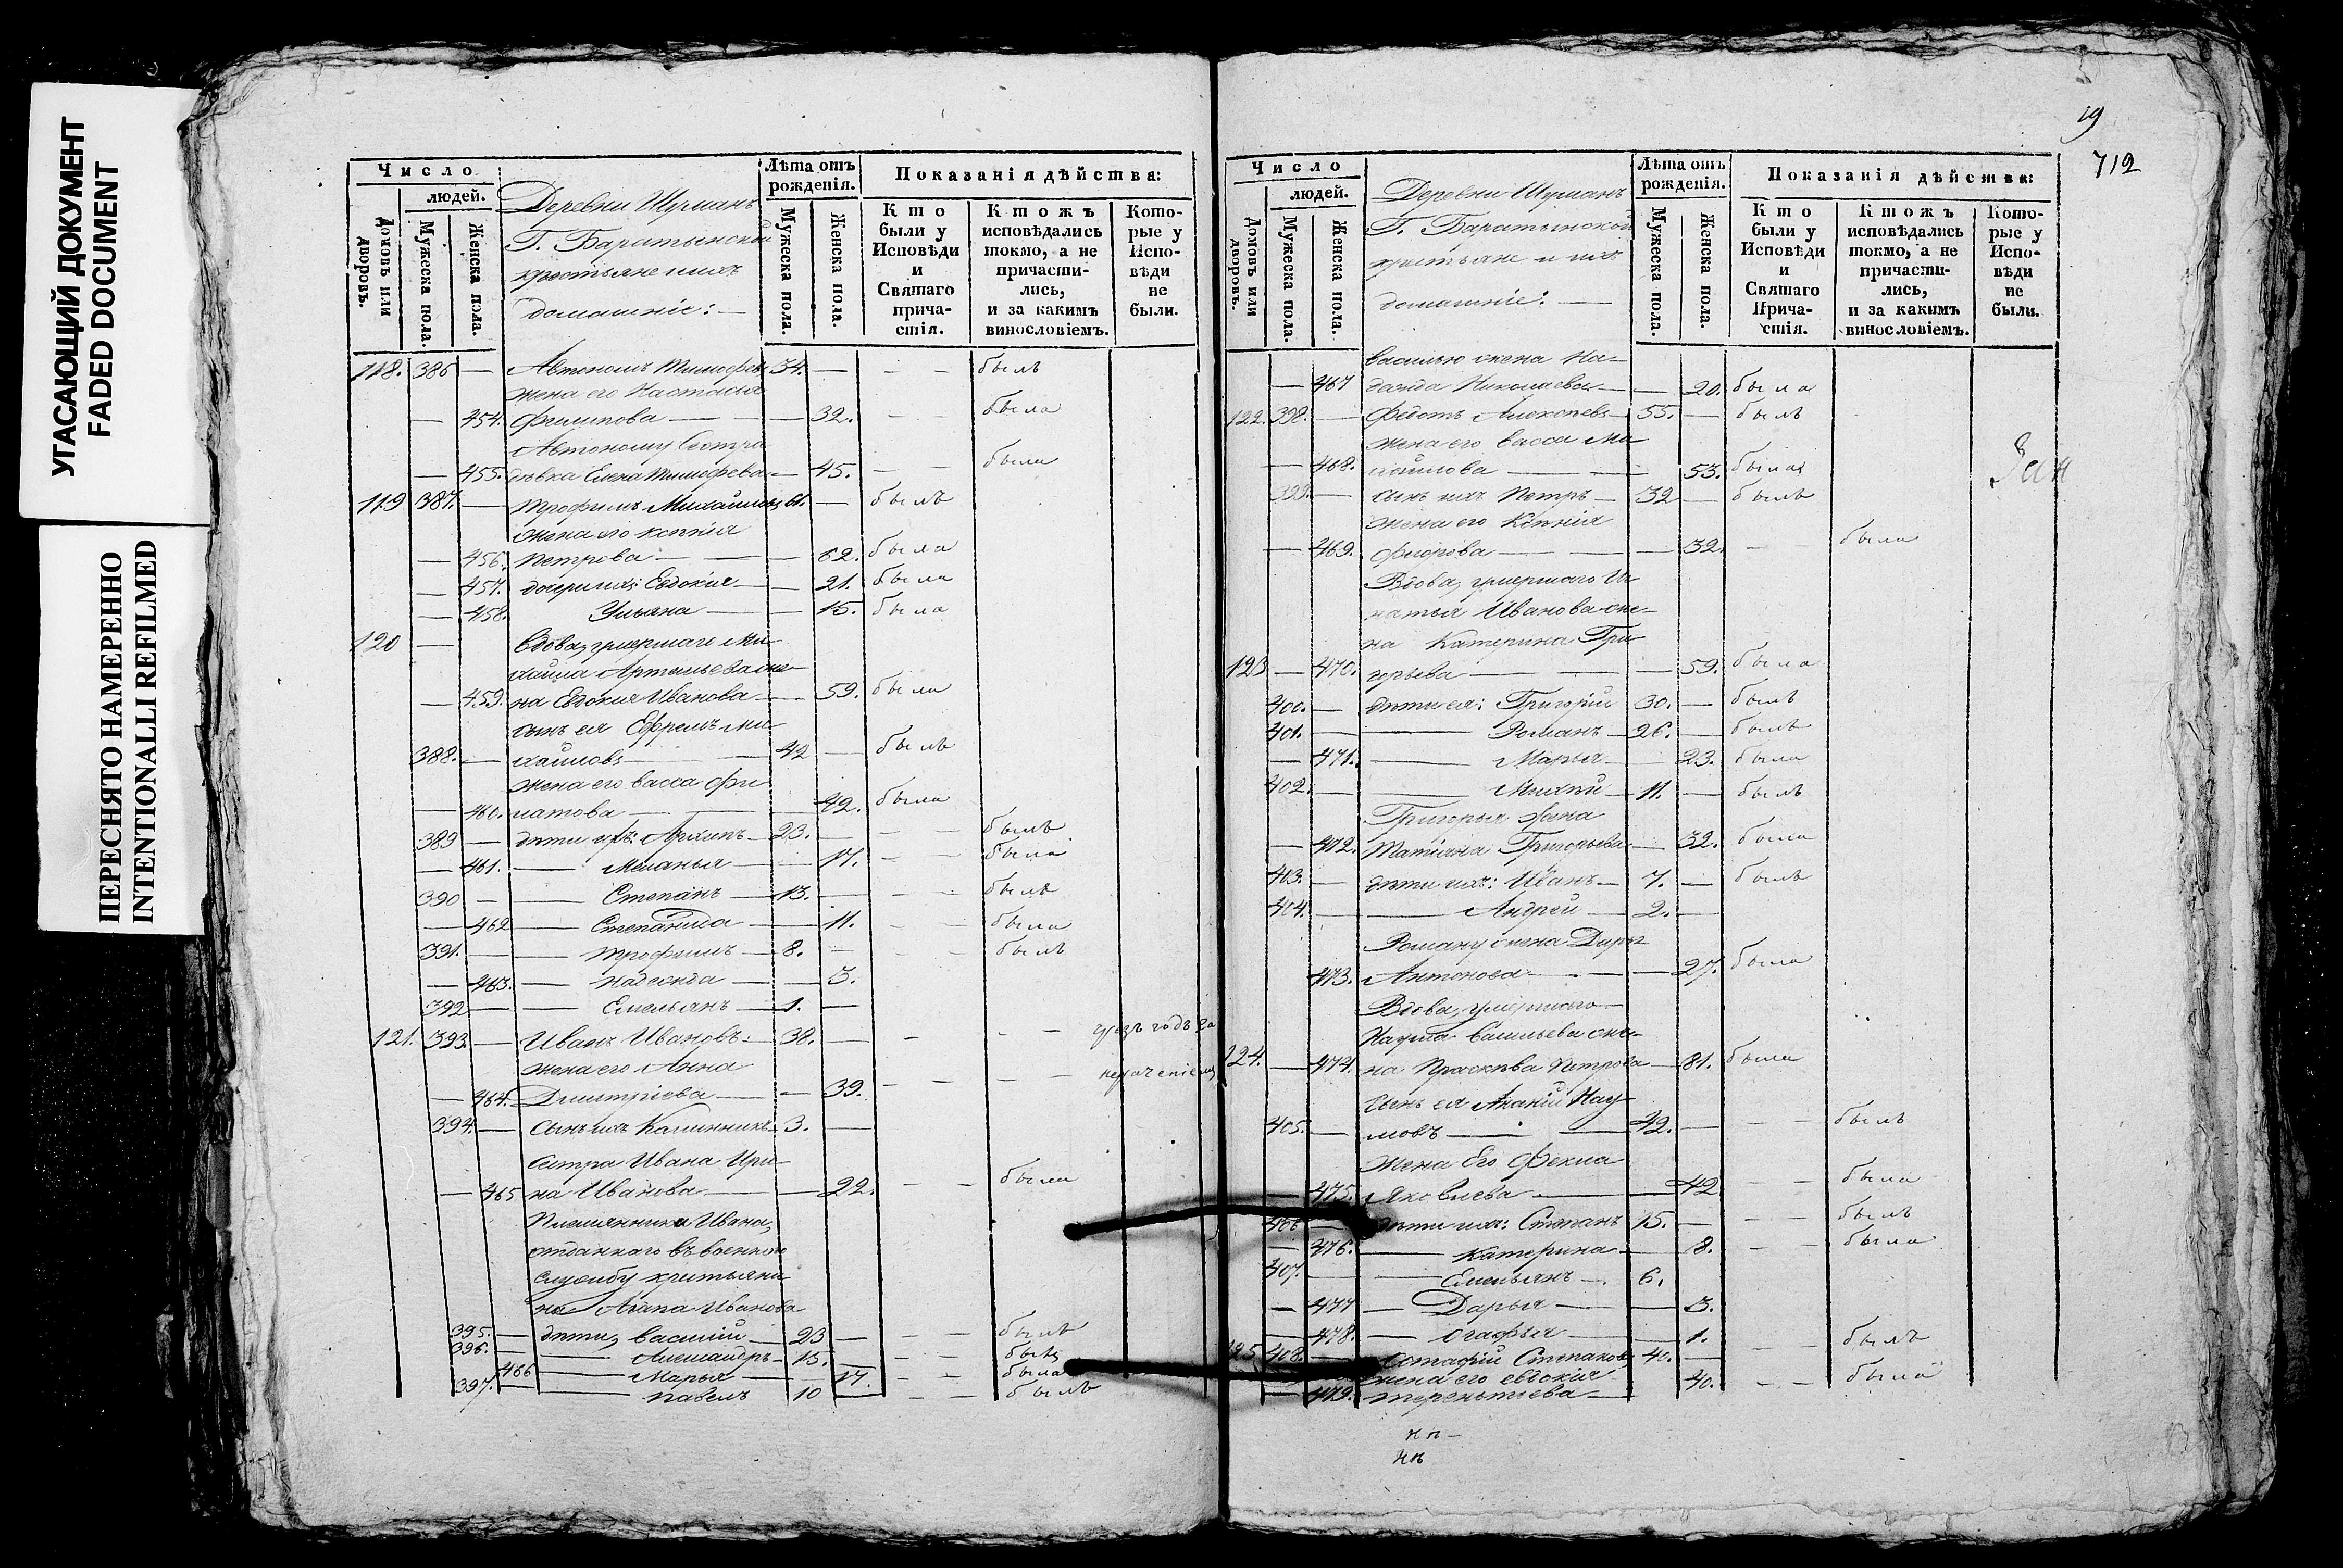 УГАСАЮЩИЙ ДОКУМЕНТ
FADED DOCUMENT
ПЕРЕСНЯТО НАМЕРЕННО
INTENTIONALLI REFILMED
Число
людей.
Домовъ или дворовъ.
Мужеска пола.
Женска пола.
Деревни Шуманъ
Г. Баратынской
крестьяне и ихъ
домашніе: —
Лѣта отъ рожденія.
Мужеска пола.
Женска пола.
Показанія дѣйства:
Кто были у Исповѣди и Святаго прича-стія.
Ктожъ исповѣдались токмо, а не причасти-лись, и за какимъ винословіемъ.
Кото-рые у Испо-вѣди не были.
118. 386 — Автономъ Тимофеев 34. — — — былъ
жена его Настасья
— 454. Филипова — — 32. — — была
Автоному Сестра
— 455. дѣвка Елена Тимофеева — 45. — — была
119 387. — Трофимъ Михайловъ 61. — былъ
жена его Ксенія
— 456. Петрова — — 62. была
— 457. дочери ихъ: Евдокия — — 21. была
— 458. Ульяна — — 15. была
120 — Вдова, умершаго Ми-
хаила Артемьева же-
— 459. на Евдокия Иванова — — 59. была
сынъ ея Ефремъ Ми-
388. — хайловъ — 42 — былъ
жена его Васса Фи
— 460. латова — — 42. была
389 — дѣти ихъ: Архипъ — 23. — — — былъ
— 461. — Меланья — — 17. — — была
390 — — Степанъ — 13. — — — былъ
— 462 — Степанида — — 11. — — была
391. — — Трофимъ — 8. — — — былъ
— 463. — Надежда — — 3.
392 — — Емельянъ — 1. —
121. 393. — Иванъ Ивановъ — 38. — — — —
жена его Анна
— 464. Дмитріева — — 39. — — —
394. — Сынъ ихъ Калинникъ 3. —
Сестра Ивана Ири-
— 465 на Иванова — — 22. — — была
Племянники Ивана,
отданнаго въ военною
службу крестьяни
на Агапа Иванова
395. — дѣти, Василий — 23 — — — былъ
396. — — Александръ — 13. — — — былъ
466 — Марья — 17. — — была
397. — — Павелъ 10 — — — былъ
19
712
Число
людей.
Домовъ или дворовъ.
Мужеска пола.
Женска пола.
Деревни Шуманъ
Г. Баратынской
крестьяне и ихъ
домашніе: —
Лѣта отъ рожденія.
Мужеска пола.
Женска пола.
Показанія дѣйства:
Кто были у Исповѣди и Святаго Прича-стія.
Ктожъ исповѣдались токмо, а не причасти-лись, и за какимъ винословіемъ.
Кото-рые у Испо-вѣди не были.
Василью жена На-
— 467 дежда Николаева — — 20. была
122. 398. — Федотъ Алексеевъ 55. — былъ
жена его Васса Ми
— 468. хайлова — — 53. была
399. — сынъ ихъ Петръ — 32 — былъ
жена его Ксенія
— 469. — — 32. — — была
Вдова, умершаго Иг
натья Иванова же-
на Катерина Гри
123 — 470. горьева — — 59. была
400. — дѣти ея: Григорій 30. — былъ
401. — Романъ — 26. — былъ
— 471. — Марья — 23. была
402. — — 11. — былъ
Григорья жена
— 472. Татіана Григорьева — 32. была
403. — дѣти ихъ: Иванъ — 7. — былъ
404. — — Андрей — 2. —
Роману жена Дарья
473. Антонова — — 27. была
Вдова, умершаго
Наума Васильева же-
124. — 474. на Прасковa Петрова — 81. была
Сынъ ея Ананій Нау-
405. — мовъ — — 42. — — — былъ
Жена Его Фекла
— 475. Яковлева — — 42 — — была
406 — дѣти ихъ: Степанъ 15. — — — былъ
— 476. — Катерина — 8. — — была
407. — — Емельянъ — 6.
— 477 — Дарья — — 3.
— 478. — Агафья — — 1.
125 408. — Евстафій Степановъ 40. — — — былъ
жена его Евдокия
— 479. Терентьева — 40. — — была